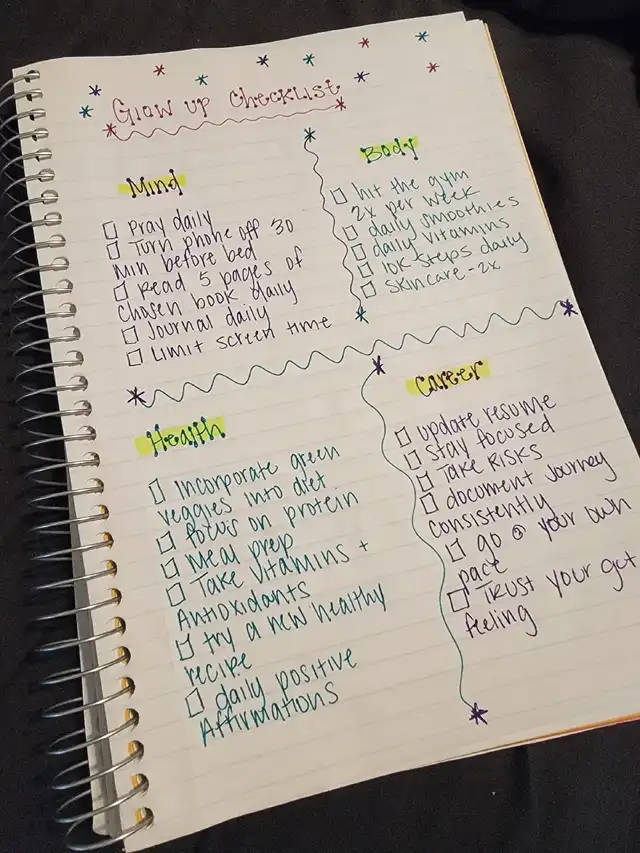 Glow up checklist
Mind
Pray daily
Turn phone off 30
min before bed
Read 5 pages of
chosen book daily
Journal daily
Limit screen time
Body
hit the gym
2x per week
daily smoothies
daily vitamins
10K steps daily
skincare - 2x
Health
Incorporate green
veggies into diet
focus on protein
Meal prep
Take vitamins +
Antioxidants
try a new healthy
recipe
daily positive
Affirmations
Career
update resume
stay focused
Take Risks
document journey
consistently
go @ your own
pace
Trust your gut
feeling